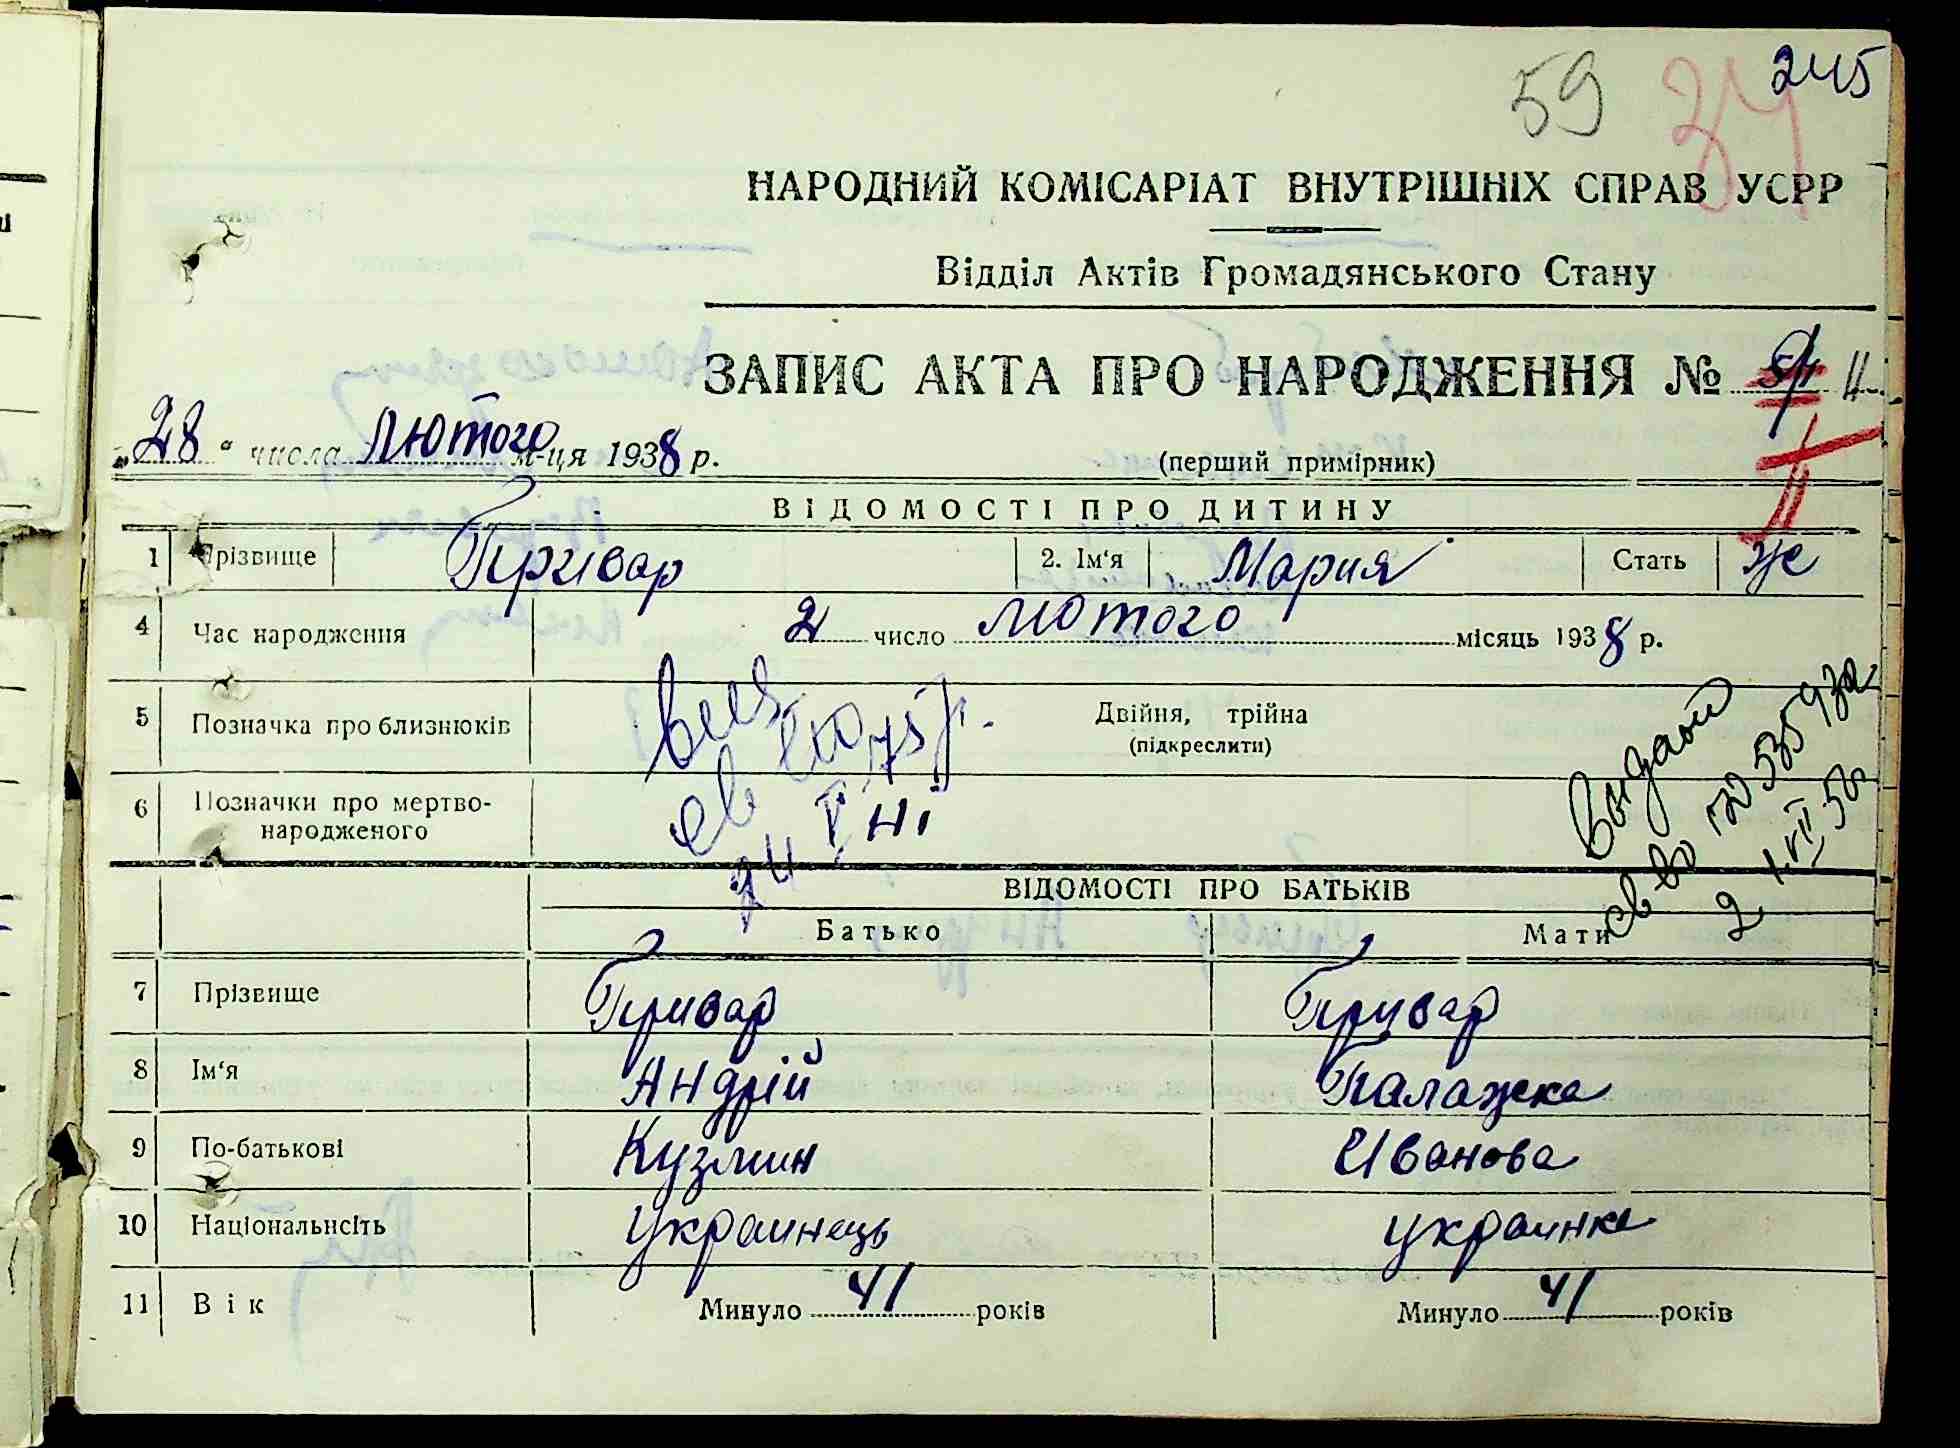 59 34 245
НАРОДНИЙ КОМІСАРІАТ ВНУТРІШНІХ СПРАВ УСРР
Відділ Актів Громадянського Стану
ЗАПИС АКТА ПРО НАРОДЖЕННЯ № 11
„28“ числа Лютого м-ця 1938 р. (перший примірник)
ВІДОМОСТІ ПРО ДИТИНУ
1 Прізвище Привар 2. Ім‘я Мария Стать же
4 Час народження 2 число Лютого місяць 1938 р.
5 Позначка про близнюків Двійня, трійна
(підкреслити)
6 Позначки про мертво-
народженого
Выдано
св во
ВІДОМОСТІ ПРО БАТЬКІВ
Батько Мати
7 Прізвище Привар Привар
8 Ім‘я Андрій Палажка
9 По-батькові Кузмин Иванова
10 Національнсіть Украинець украинка
11 Вік Минуло 41 років Минуло 41 років